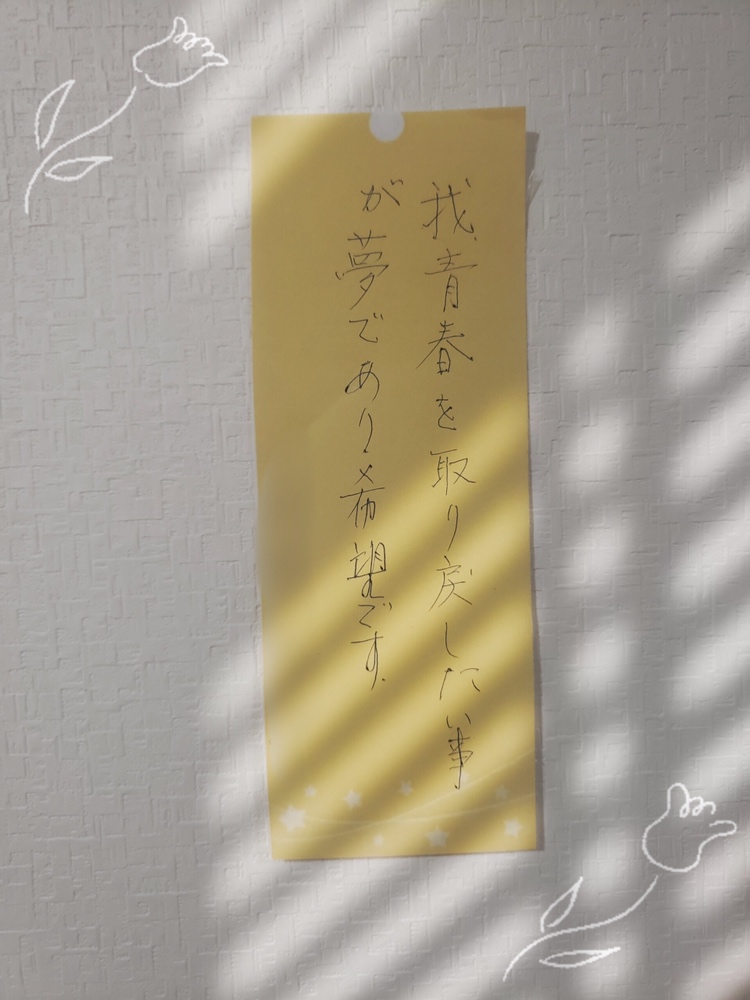 我青春を取り戻したい事
が夢であり希望です。